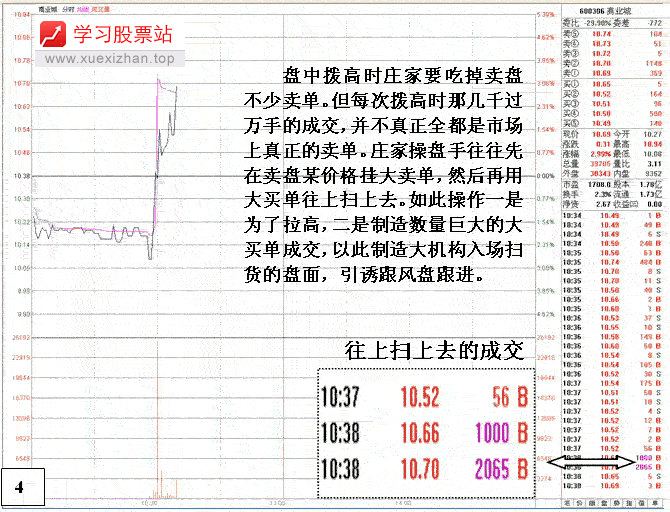 商业城 分时 均线 成交量
学习股票站
www.xuexizhan.top
盘中拨高时庄家要吃掉卖盘
不少卖单。但每次拨高时那几千过
万手的成交，并不真正全都是市场
上真正的卖单。庄家操盘手往往先
在卖盘某价格挂大卖单，然后再用
大买单往上扫上去。如此操作一是
为了拉高，二是制造数量巨大的大
买单成交，以此制造大机构入场扫
货的盘面，引诱跟风盘跟进。
往上扫上去的成交
10:37 10.52 56 B
10:38 10.66 1000 B
10:38 10.70 2065 B
4
10.94
10.86
10.78
10.62
10.54
10.48
10.38
10.30
10.22
10.14
10.06
8.98
9.90
26192
22918
19644
16370
13096
9822
6548
3274
5.39%
600306 商业城
委比 -29.90% 委差 -772
卖⑤ 10.74 104
卖④ 10.73 51
卖③ 10.72 5
卖② 10.70 1148
卖① 10.69 369
买① 10.65 5
买② 10.52 164
买③ 10.51 96
买④ 10.50 500
买⑤ 10.49 140
现价 10.69 今开 10.27
涨跌 0.31 最高 10.94
涨幅 2.99% 最低 10.08
总量 39705 量比 3.11
外盘 30343 内盘 9362
市盈 1708.0 股本 1.78亿
换手 2.3% 流通 1.73亿
净资 2.67 收益㈢ 0.00
10:34 10.49 1 B
10:34 10.49 49 B
10:34 10.49 6 S
10:34 10.50 240 B
10:35 10.50 53 B
10:35 10.74 484 B
10:35 10.70 8 S
10:35 10.70 11 S
10:35 10.50 40 S
10:35 10.66 2 B
10:35 10.60 1 B
10:36 10.53 37 S
10:36 10.55 10 S
10:36 10.58 149 B
10:36 10.60 50 B
10:36 10.54 8 S
10:36 10.54 105 B
10:36 10.52 30 S
10:37 10.54 175 B
10:37 10.51 50 S
10:37 10.51 10 S
10:37 10.52 4 S
10:37 10.52 12 B
10:37 10.52 7 B
10:37 10.52 2 B
10:37 10.52 56 B
10:38 10.65 5 S
10:38 10.69 3 B
笔 价 细 盘 势 指 值 单